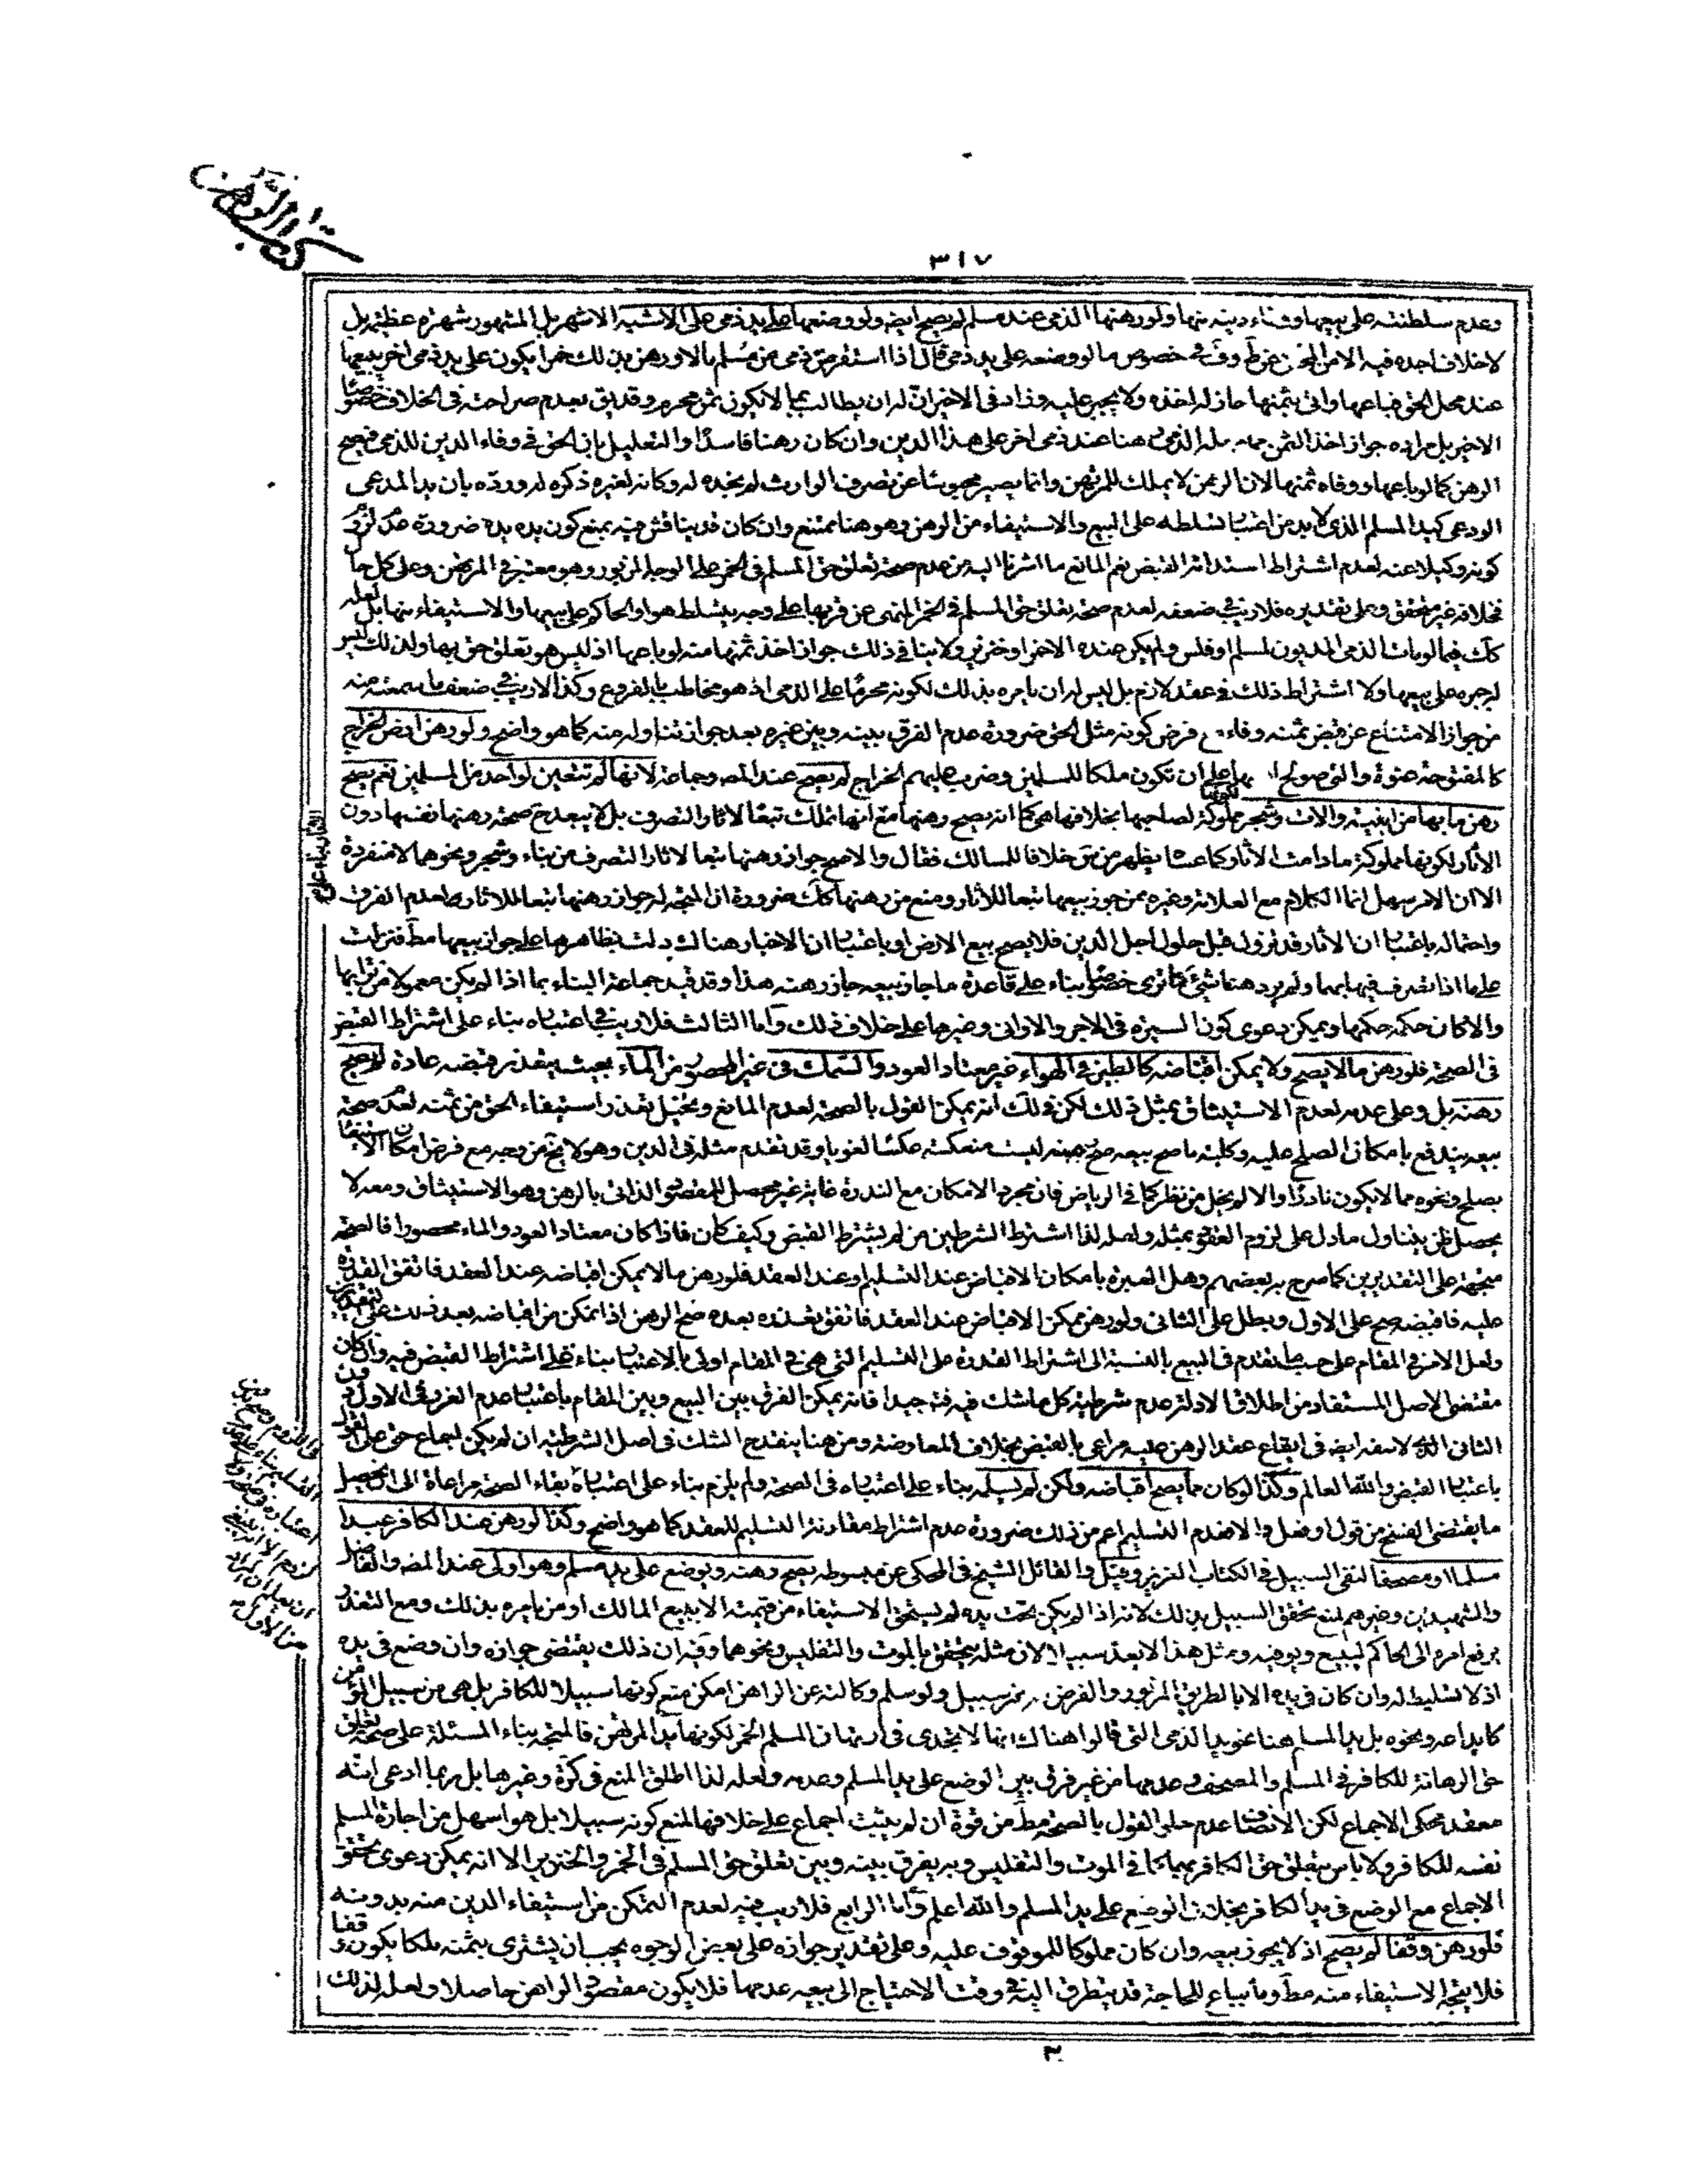 كتاب الرهن
٣١٧
وعدم سلطنته على بيعها وفاء دينه منها ولو رهنها الذمي عند مسلم لم يصح ايضا ولو وضعها على يد ذمي على الاشبه الاشهر بل المشهور شهرة عظيمة بل
لا خلاف اجده فيه الا من المحكي عن ط وف في خصوص ما لو وضعه على يد ذمي قال اذا استقرض ذمي من مسلم مالا ورهن بذلك خمرا يكون على يد ذمي اخر يبيعها
عند محل الحق فباعها واتى بثمنها جاز له اخذه ولا يجبر عليه وزاد في الاخير ان له ان يطالب بما لا يكون ثمن محرم وقد يق بعدم صراحته في الخلاف خصوصا
الاخير بل مراده جواز اخذ الثمن جعله الذمي رهنا عند ذمي اخر على هذا الدين وان كان رهنا فاسدا والتعليل بان الحق في وفاء الدين للذمي فيصح
الرهن كما لو باعها ووفاه ثمنها لان الرهن لا يملك للمرتهن وانما يصير محبوسا عن تصرف الوارث لم نجده له وكانه لغيره ذكره له ورده بان يد المدعي
الودعي كيد المسلم الذي لا بد من اعتبار تسلطه على البيع والاستيفاء من الرهن وهو هنا ممتنع وان كان قد يناقش فيه بمنع كون يده يده ضرورة عدم لزوم
كونه وكيلا عنه لعدم اشتراط استدامة القبض نعم المانع ما اشرنا اليه من عدم صحة تعلق حق المسلم في الخمر على الوجه المزبور وهو معتبر في المرتهن وعلى كل حال
فخلافه غير متحقق وعلى تقديره فلا ريب في ضعفه لعدم صحة تعلق حق المسلم في الخمر المنهي عن قربها على وجه يتسلط هو او الحاكم على بيعها والاستيفاء منها بل لعله
كك فيما لو مات الذمي المديون لمسلم او فلس ولم يكن عنده الا خمر او خنزير ولا ينافي ذلك جواز اخذ ثمنها منه لو باعها اذ ليس هو تعلق حق بها ولذلك ليس
له جبره على بيعها ولا اشتراط ذلك في عقد لازم بل ليس له ان يامره بذلك لكونه محرما على الذمي اذ هو مخاطب بالفروع وكذا لا ريب في ضعف ما سمعته منه
من جواز الامتناع عن قبض ثمنه وفاء مع فرض كونه مثل الحق ضرورة عدم الفرق بينه وبين غيره بعد جواز تناوله منه كما هو واضح ولو رهن ارض الخراج
كالمفتوحة عنوة والتي صولح اهلها على ان تكون ملكا للمسلمين وضرب عليهم الخراج لم يصح عند المص وجماعة لانها لم تتعين لواحد من المسلمين نعم يصح
رهن ما بها من ابنية والات وشجر لكونها مملوكة لصاحبها بخلافها هي كما انه يصح رهنها مع انها تملك تبعا لاثار التصرف بل لا يبعد صحة رهنها نفسها دون
الاثار لكونها مملوكة ما دامت الاثار كما عساه يظهر من س خلافا للمسالك فقال والاصح جواز رهنها تبعا لاثار التصرف من بناء وشجر ونحوهما لا منفردة
الا ان الامر سهل انما الكلام مع العلامة وغيره ممن جوز بيعها تبعا للاثار ومنع من رهنها كك ضرورة ان المتجه له جواز رهنها تبعا للاثار لعدم الفرق
واحتماله باعتبار ان الاثار قد تزول قبل حلول اجل الدين فلا يصح بيع الارض او باعتبار ان الاخبار هناك دلت بظاهرها على جواز بيعها مط فنزلت
على ما اذا تصرف فيها بهما ولم يرد هنا شيء كما ترى خصوصا بناء على قاعدة ما جاز بيعه جاز رهنه هذا وقد قيد جماعة البناء بما اذا لم يكن معمولا من ترابها
والا كان حكمه حكمها ويمكن دعوى كون السيرة في الاجر والاواني وغيرها على خلاف ذلك واما الثالث فلا ريب في اعتباره بناء على اشتراط القبض
في الصحة فلو رهن ما لا يصح ولا يمكن اقباضه كالطير في الهواء غير معتاد العود والسمك في غير المحصور من الماء بحيث يتعذر قبضه عادة لم يصح
رهنه بل وعلى عدمه لعدم الاستيثاق بمثل ذلك لكن في لك انه يمكن القول بالصحة لعدم المانع وتخيل تعذر استيفاء الحق من ثمنه لعدم صحة
بيعه يندفع بامكان الصلح عليه وكلية ما صح بيعه صح رهنه ليست منعكسة عكسا لغويا وقد تقدم مثله في الدين وهو لا يخ من وجه مع فرض امكان الاستيفاء
بصلح ونحوه مما لا يكون نادرا والا لم يخل من نظر كما في الرياض فان مجرد الامكان مع الندرة غايته غير محصل للمقصود الذاتي بالرهن وهو الاستيثاق ومعه لا
يحصل ظن بتناول ما دل على لزوم العقود بمثله ولعله لذا اشترط الشرطين من لم يشترط القبض وكيف كان فاذا كان معتاد العود والماء محصورا فالصحة
متجهة على التقديرين كما صرح به بعضهم وهل العبرة بامكان الاقباض عند التسليم او عند العقد فلو رهن ما لا يمكن اقباضه عند العقد فاتفق القدرة
عليه فاقبضه صح على الاول وبطل على الثاني ولو رهن ممكن الاقباض عند العقد فاتفق تعذره بعده صح الرهن اذا تمكن من اقباضه بعد ذلك على التقديرين
ولعل الامر في المقام على حسب ما تقدم في البيع بالنسبة الى اشتراط القدرة على التسليم التي هي في المقام اولى بالاعتبار بناء على اشتراط القبض فيه وان كان
مقتضى الاصل المستفاد من اطلاق الادلة عدم شرطية كل ما شك فيه فتجيدا فانه يمكن الفرق بين البيع وبين المقام باعتبار عدم الغرر في الاول دون
الثاني لانه لا سفه ايضا في ايقاع عقد الرهن عليه مراعى بالقبض بخلاف المعاوضة ومن هنا ينقدح الشك في اصل الشرطية ان لم يكن اجماع حتى على القول
باعتبار القبض والله العالم وكذا لو كان مما يصح اقباضه ولكن لم يسلمه بناء على اعتباره في الصحة ولم يلزم بناء على اعتباره بقاء الصحة مراعاة الى ان يحصل
ما يقتضي الفسخ من قول او فعل والا فعدم التسليم اعم من ذلك ضرورة عدم اشتراط مقارنة التسليم للعقد كما هو واضح وكذا لو رهن عند الكافر عبدا
مسلما او مصحفا لنفي السبيل في الكتاب العزيز وقيل والقائل الشيخ في المحكي عن مبسوطه يصح رهنه ويوضع على يد مسلم وهو اولى عند المص والفاضل
والشهيدين وغيرهم لمنع تحقق السبيل بذلك لانه اذا لم يكن تحت يده لم يستحق الاستيفاء من قيمته الا ببيع المالك او من يامره بذلك ومع التعذر
يرفع امره الى الحاكم ليبيع ويوفيه ومثل هذا لا يعد سبيلا لان مثله يتحقق بالموت والتفليس ونحوهما وفيه ان ذلك يقتضي جوازه وان وضع في يده
اذ لا تسليط له وان كان في يده الا بالطريق المزبور والفرض انه غير سبيل ولو سلم وكالته عن الراهن امكن منع كونها سبيلا للكافر بل هي من سبيل المؤمن
كايداعه ونحوه بل يد المسلم هنا نحو يد الذمي التي قالوا هناك انها لا تجدي في ارتهان المسلم الخمر لكونها يد المرتهن فالمتجه بناء المسئلة على صحة تعلق
حق الرهانة للكافر في المسلم والمصحف وعدمها من غير فرق بين الوضع على يد المسلم وعدمه ولعله لذا اطلق المنع في كرة وغيرها بل ربما ادعى انه
معقد محكي الاجماع لكن الانصاف عدم خلو القول بالصحة مط من قوة ان لم يثبت اجماع على خلافها لمنع كونه سبيلا بل هو اسهل من اجارة المسلم
نفسه للكافر ولا باس بتعلق حق الكافر بهما كما في الموت والتفليس وبه يفرق بينه وبين تعلق حق المسلم في الخمر والخنزير الا انه يمكن دعوى تحقق
الاجماع مع الوضع في يد الكافر بخلاف الوضع على يد المسلم والله اعلم واما الرابع فلا ريب فيه لعدم التمكن من استيفاء الدين منه بدونه
فلو رهن وقفا لم يصح اذ لا يجوز بيعه وان كان مملوكا للموقوف عليه وعلى تقدير جوازه على بعض الوجوه يجب ان يشترى بثمنه ملكا يكون وقفا
فلا يتجه الاستيفاء منه مط وما يباع للحاجة قد يتطرق اليه في وقت الاحتياج الى بيعه عدمها فلا يكون مقصود الراهن حاصلا ولعله لذلك